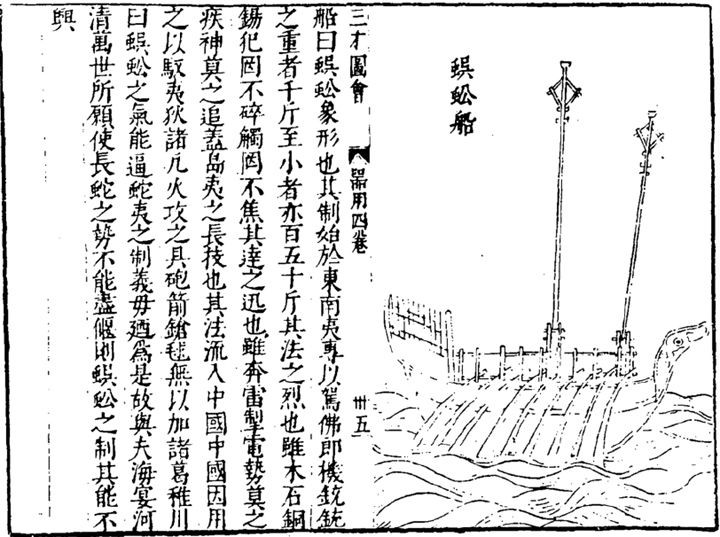 蜈蚣船
三才圖會 器用四卷 卅五
船曰蜈蚣象形也其制始於東南夷專以駕佛郎機銃銃
之重者千斤至小者亦百五十斤其法之烈也雖木石銅
錫犯罔不碎觸罔不焦其達之迅也雖奔雷掣電勢莫之
疾神莫之追蓋島夷之長技也其法流入中國中國因用
之以馭夷狄諸凡火攻之具砲箭鎗毬無以加諸葛稚川
曰蜈蚣之氣能逼蛇夷之制義毋廼爲是故與夫海宴河
清萬世所願使長蛇之勢不能盡偃則蜈蚣之制其能不
興